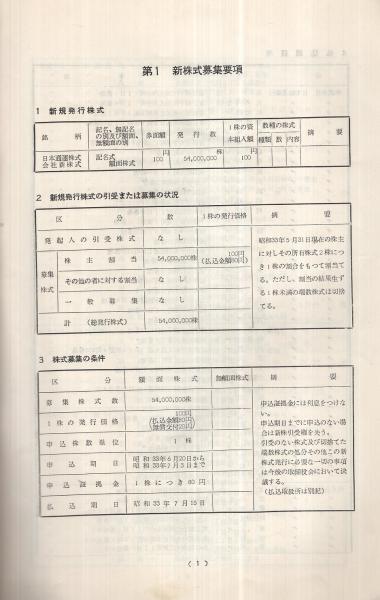 第1　新株式募集要項
1　新規発行株式
銘　柄　記名、無記名の別及び額面、無額面の別　券面額　発行数　1株の資本組入額　数種の株式　種類　数　内容　摘　要
日本通運株式会社新株式　記名式額面株式　100円　54,000,000株　100円
2　新規発行株式の引受または募集の状況
区　分　数　1株の発行価格　摘　要
発起人の引受株式　なし
募集株式　株主割当　54,000,000株　100円(払込金額80円)
その他の者に対する割当　なし
一般募集　なし
計　(総発行株式)　54,000,000株
昭和33年5月31日現在の株主
に対しその所有株式2株につ
き1株の割合をもつて割当て
る。ただし、割当の結果生ず
る1株未満の端数株式は切捨
てる。
3　株式募集の条件
区　分　額面株式　無額面株式　摘　要
募集株式数　54,000,000株
1株の発行価格　100円(払込金額80円 無償交付20円)
申込株数単位　1株
申込期日　昭和33年6月20日から昭和33年7月3日まで
申込証拠金　1株につき80円
払込期日　昭和33年7月15日
申込証拠金には利息をつけな
い。
申込期日までに申込のない場
合は新株引受権を失う。
引受のない株式及び切捨てた
端数株式の処分その他この新
株式発行に必要な一切の事項
は今後の取締役会において決
議する。
(払込取扱所は別記)
(1)